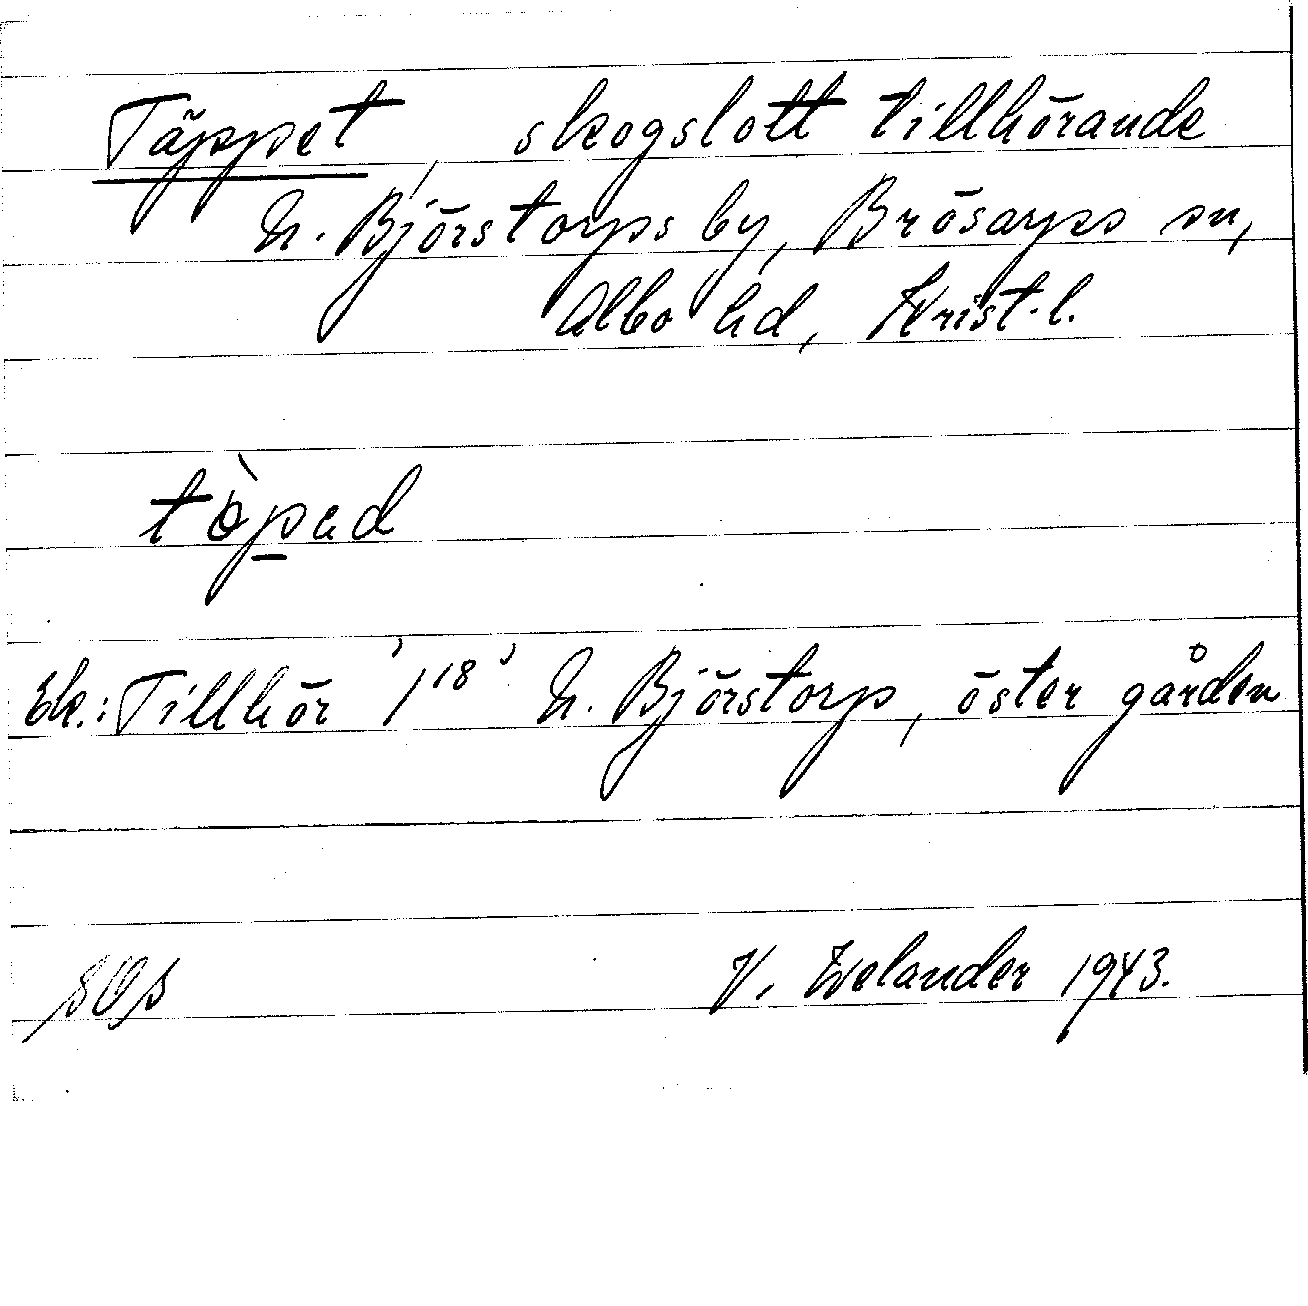 Täppet, skogslott tillhörande
N. Björstorps by, Brösarps sn,
Albo hd, Krist. l.
tòpad
Ek.: Tillhör 1¹⁸ N. Björstorp, öster gården
V. Evelander 1943.